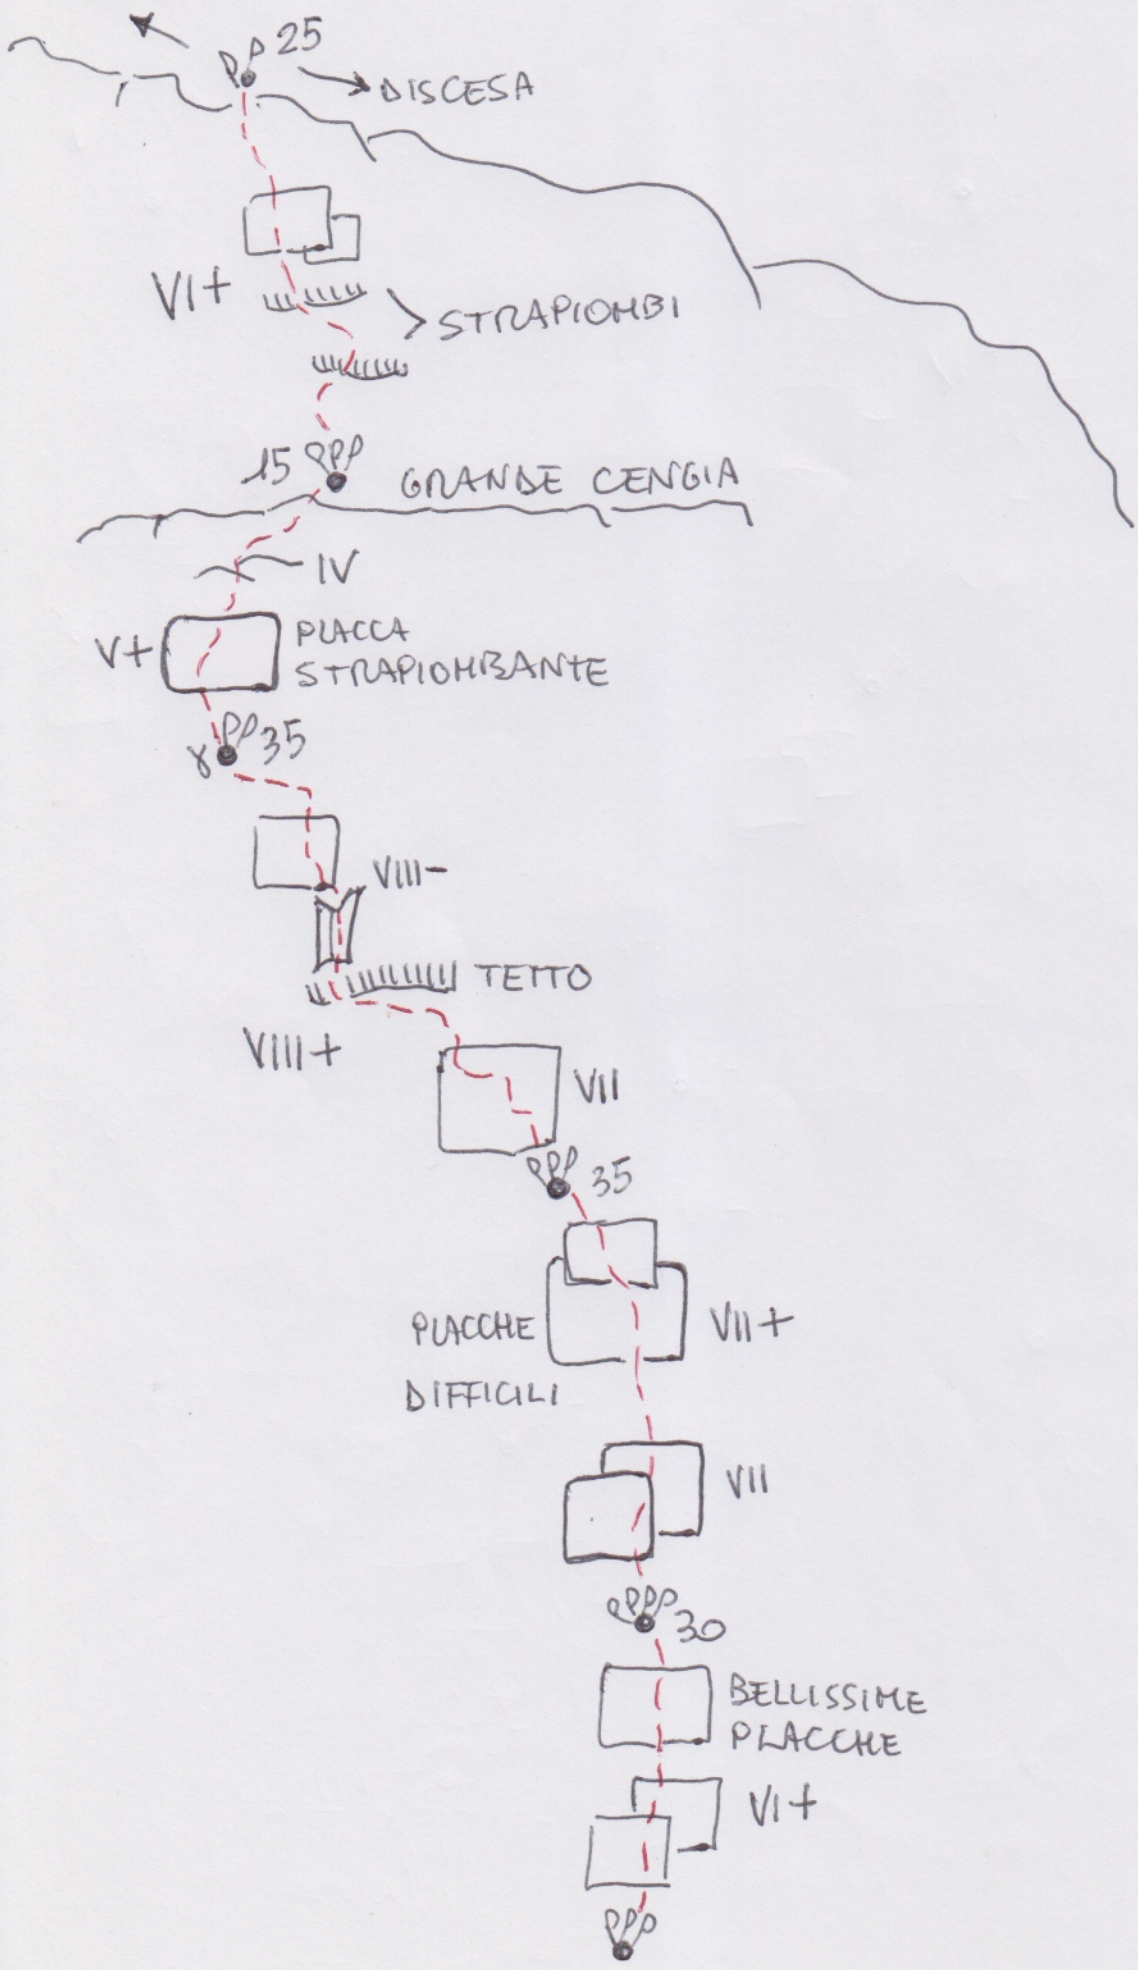 25
DISCESA
VI+
STRAPIOMBI
15
GRANDE CENGIA
IV
V+
PLACCA
STRAPIOMBANTE
35
VIII-
TETTO
VIII+
VII
35
PLACCHE
DIFFICILI
VII+
VII
30
BELLISSIME
PLACCHE
VI+